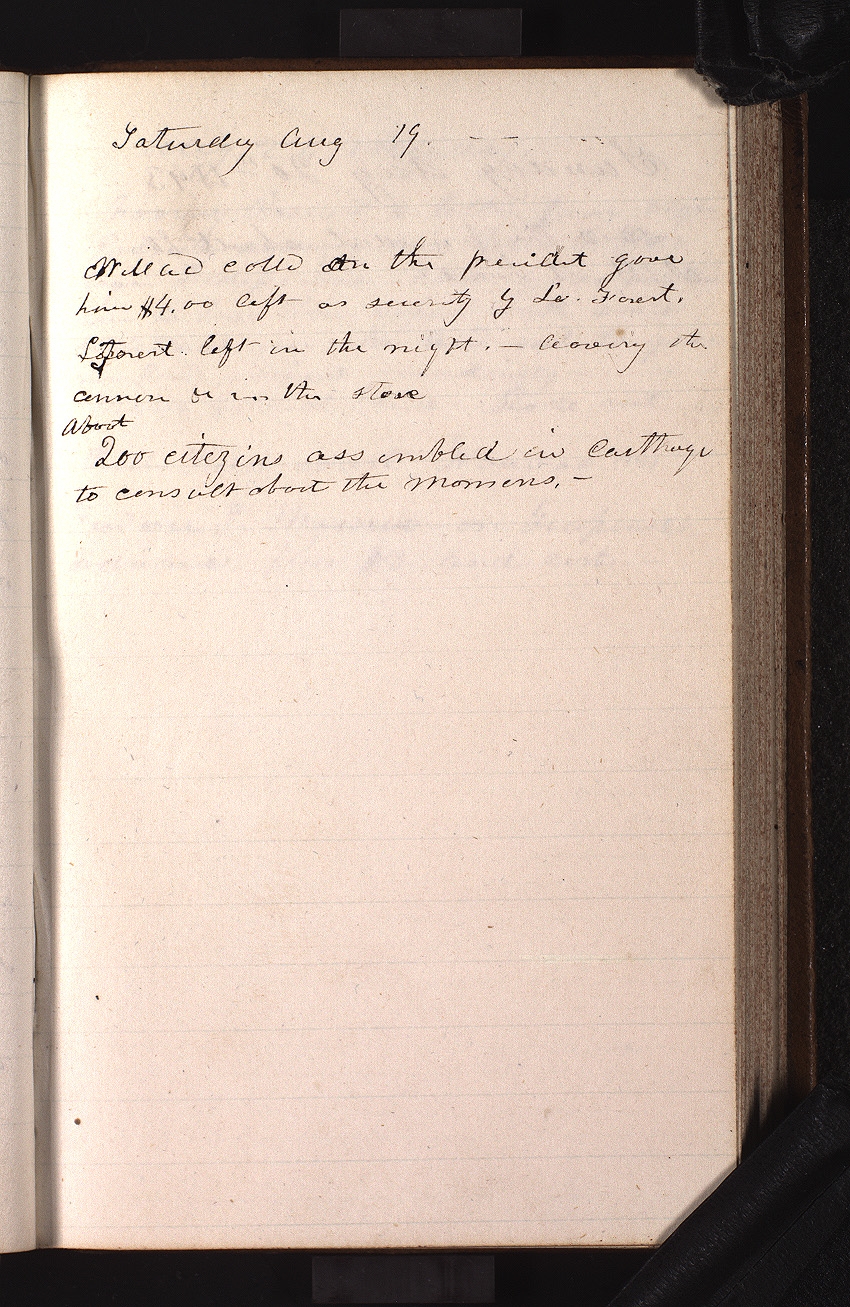 Saturday Aug 19. — —
Willard called on the president gave
him $4.00 left as security by La. Forest.
LaForest left in the night. — leaving the
cannon & in the store
About
200 citizins assembled in Carthage
to consult about the Mormons. —